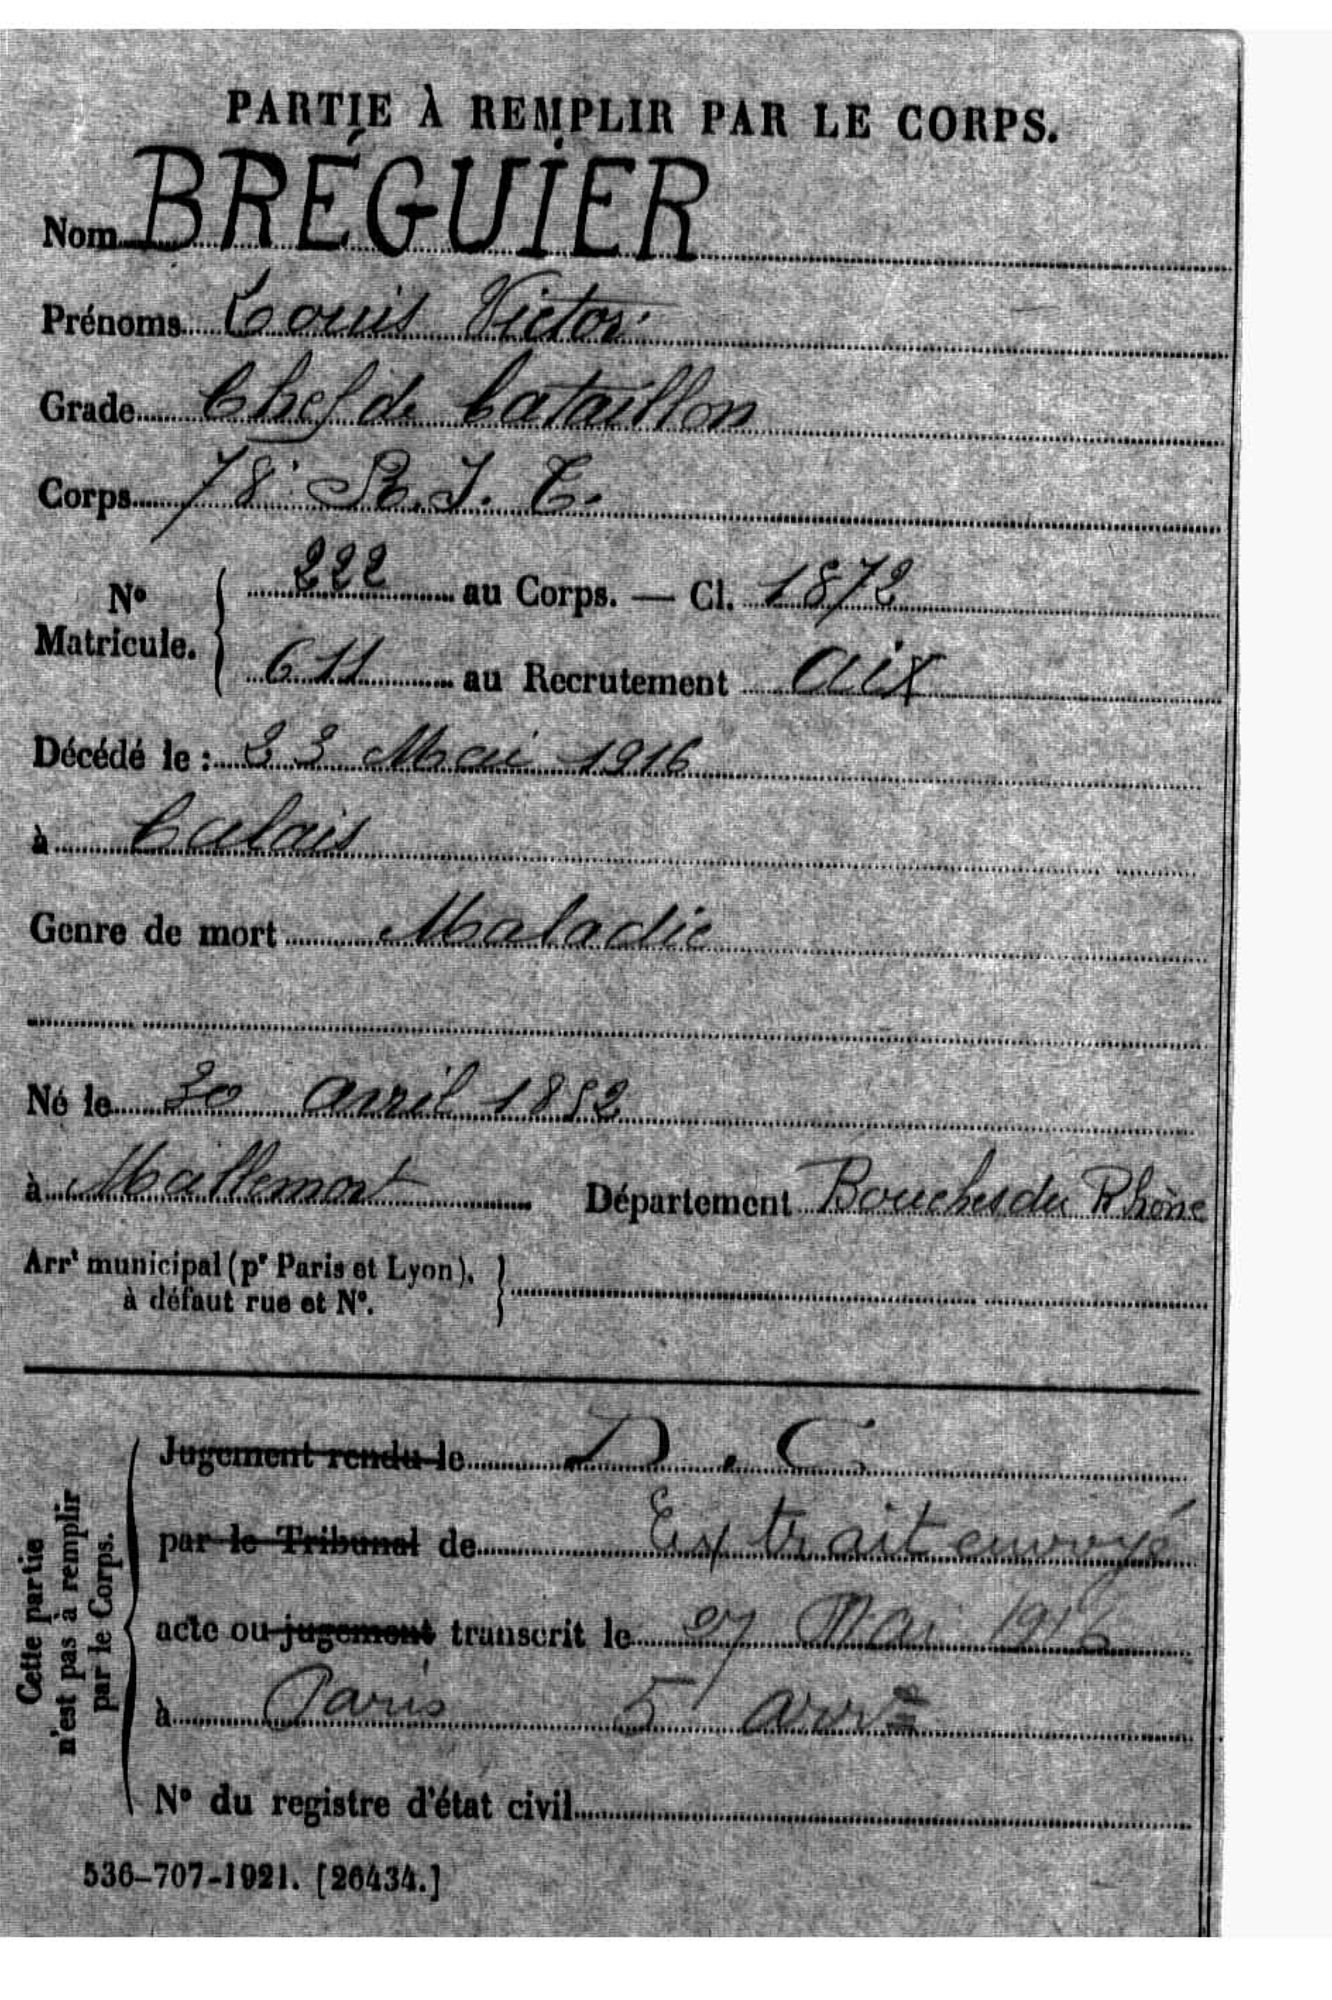 PARTIE À REMPLIR PAR LE CORPS.
Nom BRÉGUIER
Prénoms Louis Victor
Grade Chef de bataillon
Corps 78e R. I. T.
No Matricule. { 222 au Corps. — Cl. 1872
611 au Recrutement Aix
Décédé le : 23 Mai 1916
à Calais
Genre de mort Maladie
Né le 30 avril 1852
à Mallemort Département Bouches du Rhône
Arrt municipal (pr Paris et Lyon), à défaut rue et No. }
Cette partie n'est pas à remplir par le Corps.
Jugement rendu le D. C.
par le Tribunal de Extrait envoyé
acte ou jugement transcrit le 27 Mai 1916
à Paris 5 arre
No du registre d'état civil
536-707-1921. [26434.]